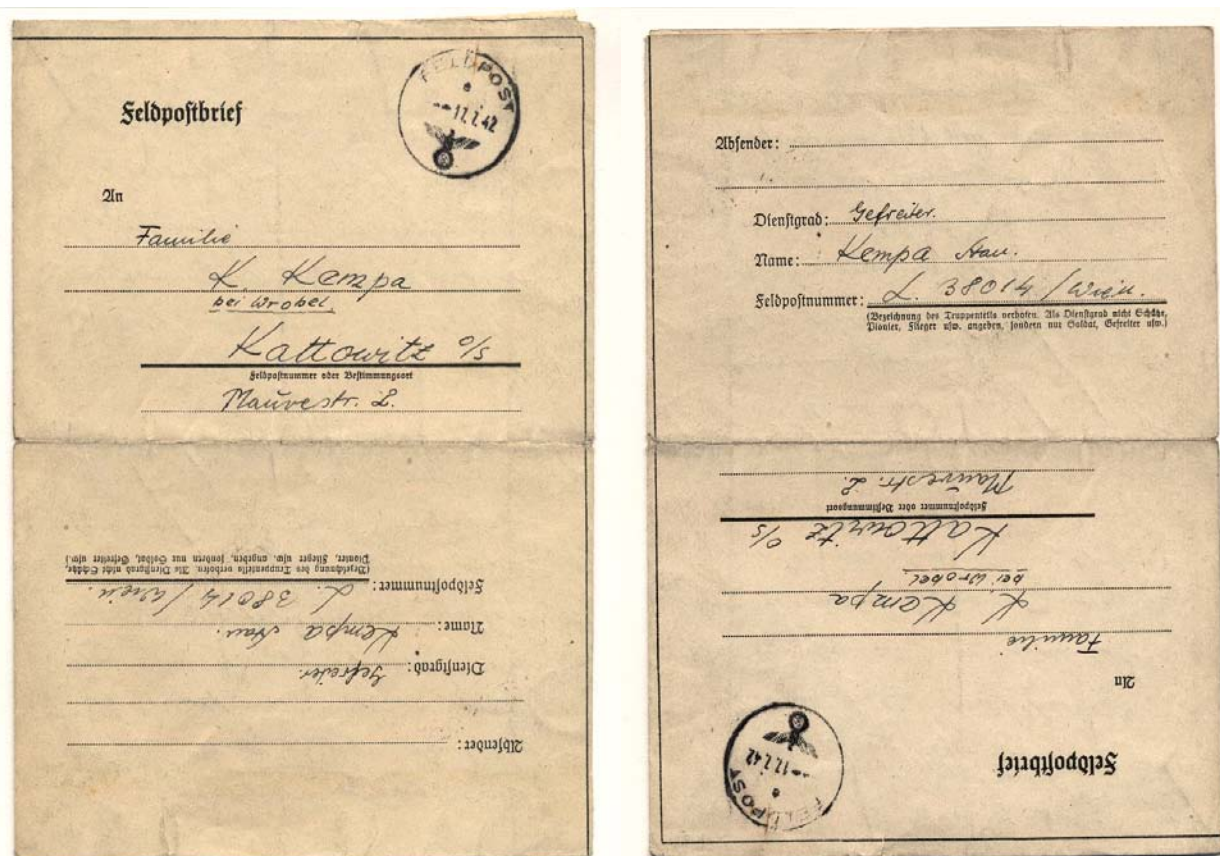 Feldpostbrief
FELDPOST
e
17.7.42
An
Familie
K. Kempa
bei Wrobel,
Kattowitz O/S
Feldpostnummer oder Bestimmungsort
Mauvestr. 2.
Absender:
Dienstgrad: Gefreiter.
Name: Kempa Stan.
Feldpostnummer: L. 38014 / Wien.
(Bezeichnung des Truppenteils verboten. Als Dienstgrad nicht Schütze,
Pionier, Flieger usw. angeben, sondern nur Soldat, Gefreiter usw.)
Absender:
Dienstgrad: Gefreiter.
Name: Kempa Stan.
Feldpostnummer: L. 38014 / Wien.
(Bezeichnung des Truppenteils verboten. Als Dienstgrad nicht Schütze,
Pionier, Flieger usw. angeben, sondern nur Soldat, Gefreiter usw.)
Feldpostbrief
FELDPOST
e
17.7.42
An
Familie
K. Kempa
bei Wrobel
Kattowitz O/S
Feldpostnummer oder Bestimmungsort
Mauvestr. 2.